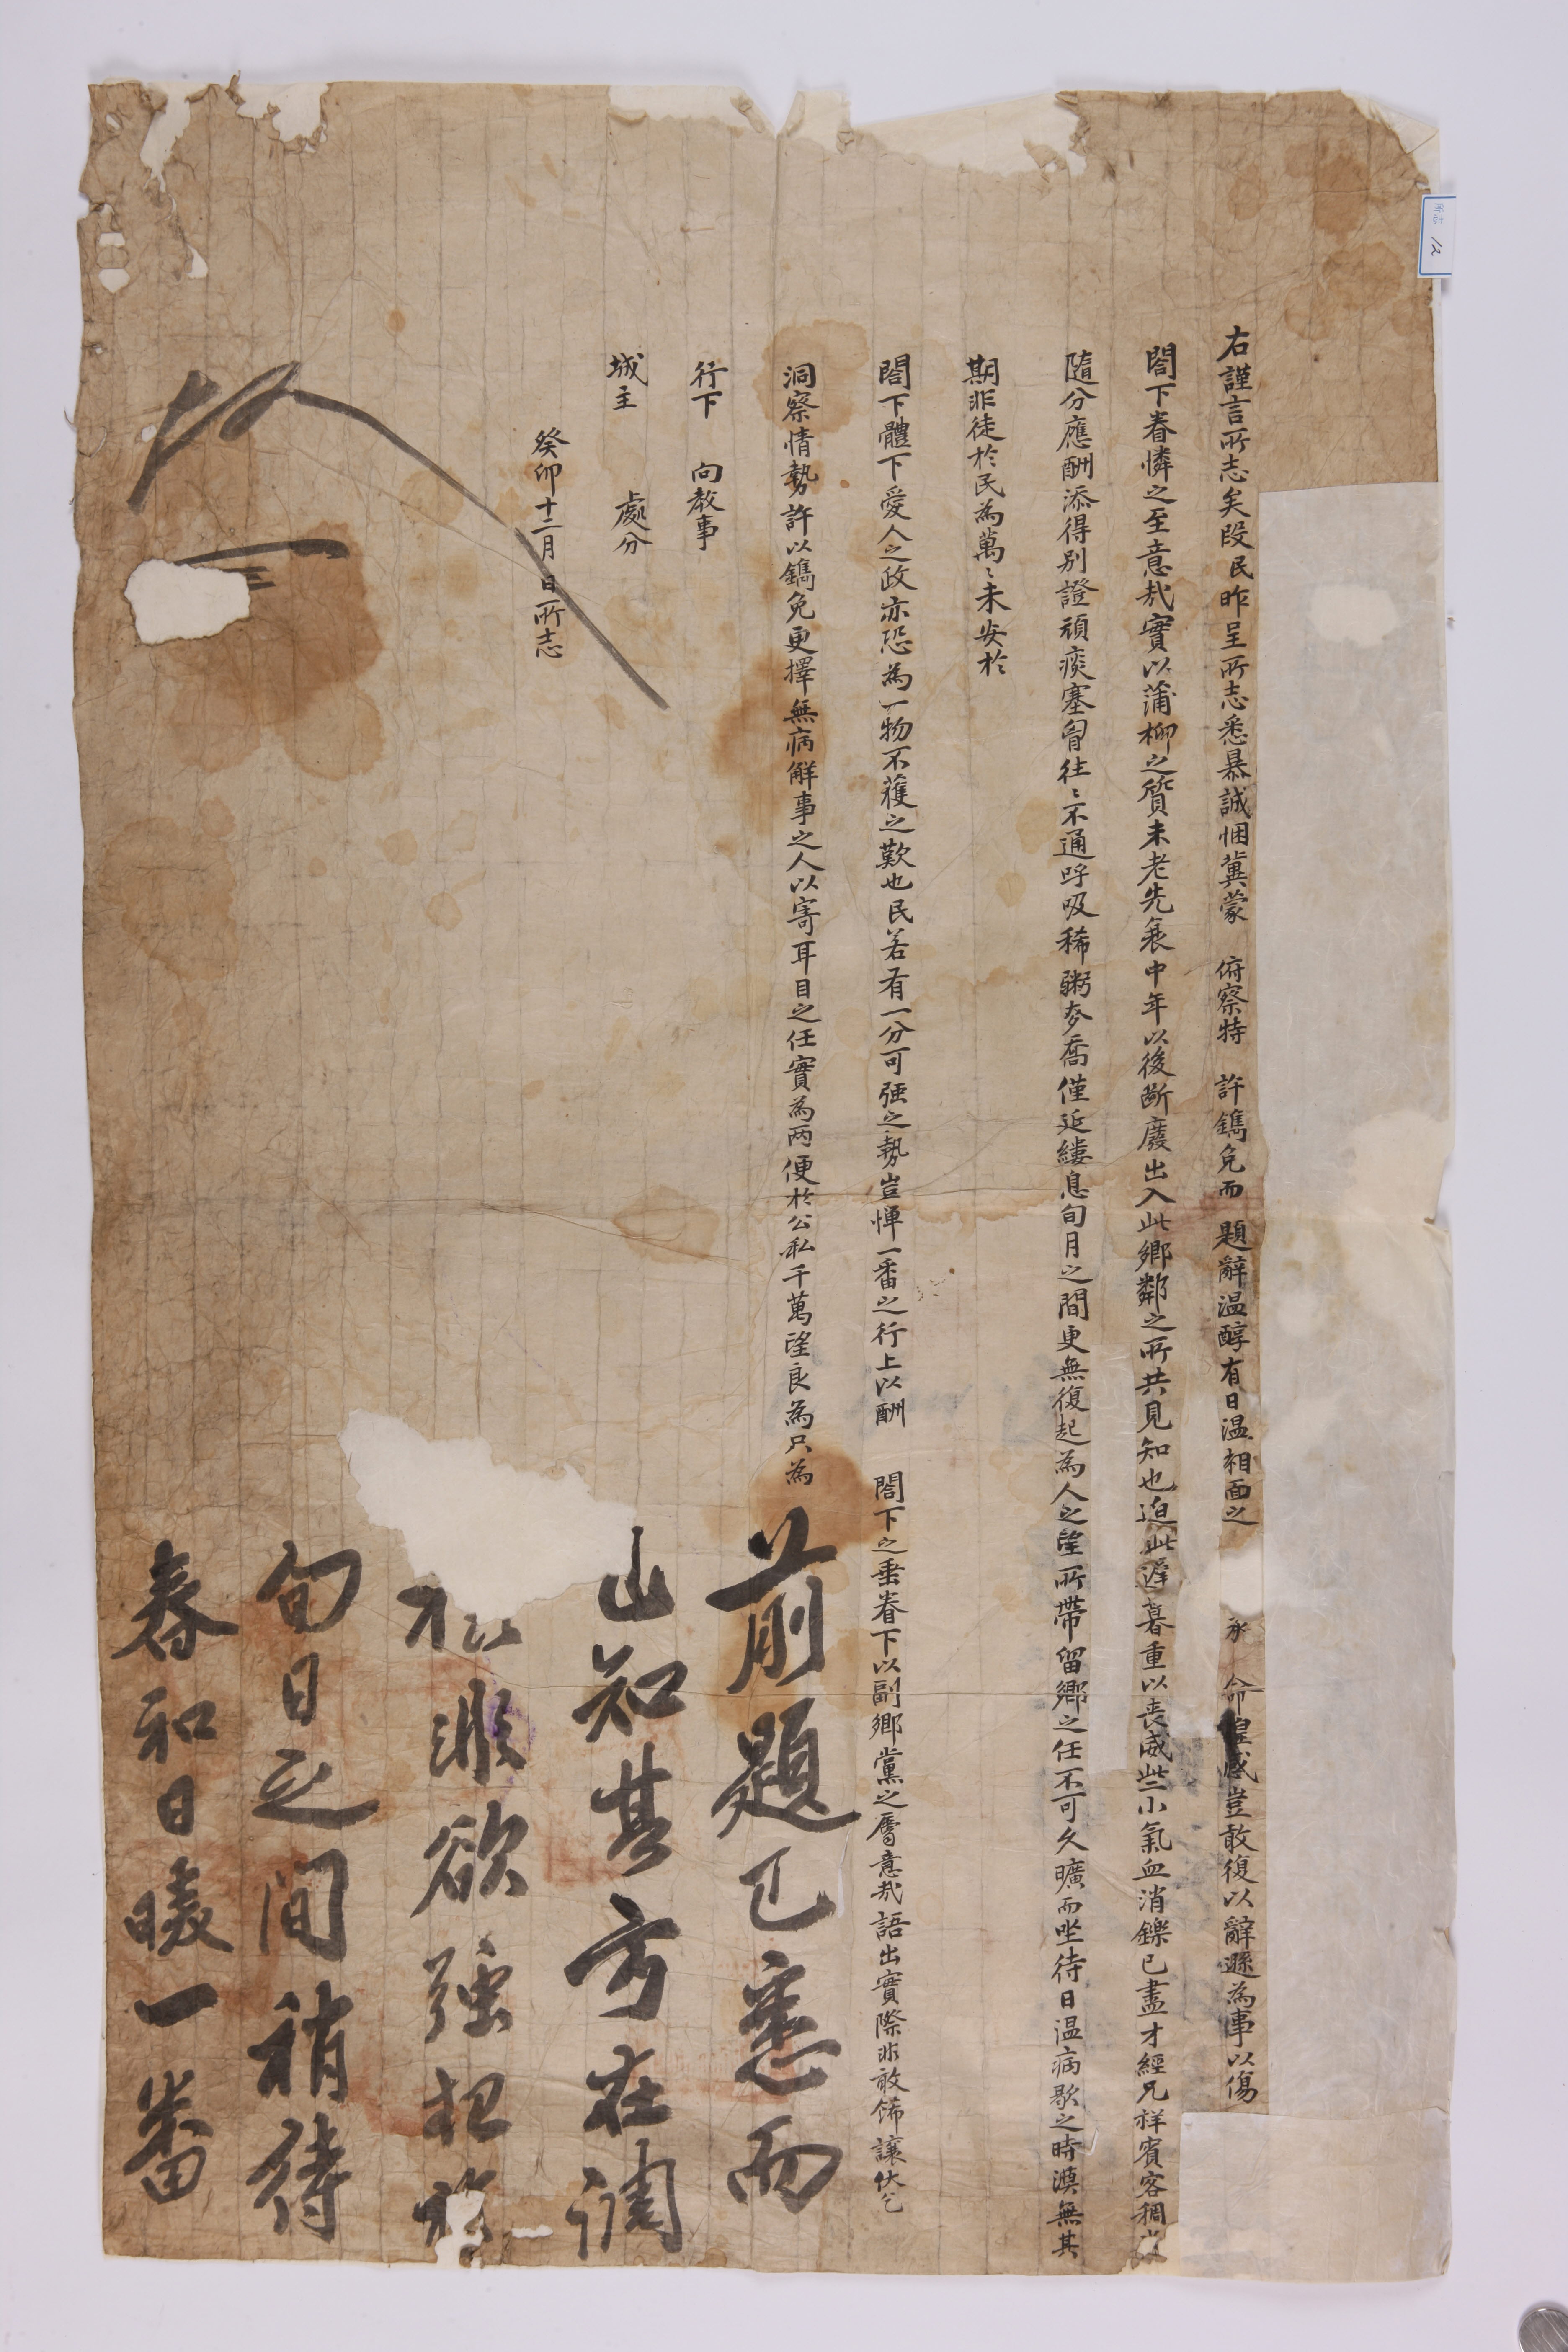 右謹言所志矣段民昨呈所志悉暴誠悃冀蒙 俯察特 許鐫免而 題辭温醇有日温相面之 承 命惶感豈敢復以辭遜為事以傷
閤下眷憐之至意哉實以蒲柳之質未老先衰中年以後斷廢出入此鄉鄰之所共見知也迫此遲暮重以喪慼些小氣血消鑠已盡才經兄祥賓客稠
隨分應酬添得別證頑痰塞胷往〻不通呼吸稀粥麥喬僅延縷息旬月之間更無復起為人之望所帶留鄉之任不可久曠而坐待日温病歇之時漠無其
期非徒於民為萬〻未安於
閤下體下愛人之政亦恐為一物不獲之歎也民若有一分可强之勢豈憚一番之行上以酬 閤下之垂眷下以副鄉黨之屬意哉語出實際非敢飾讓伏乞
洞察情勢許以鐫免更擇無病解事之人以寄耳目之任實為両便於公私千萬望良為只為
行下 向教事
城主 處分
癸卯十二月 日所志
前題已悉而
山知其方在調
漈欲强把
旬日之間稍待
春和日暖一番
所志 12